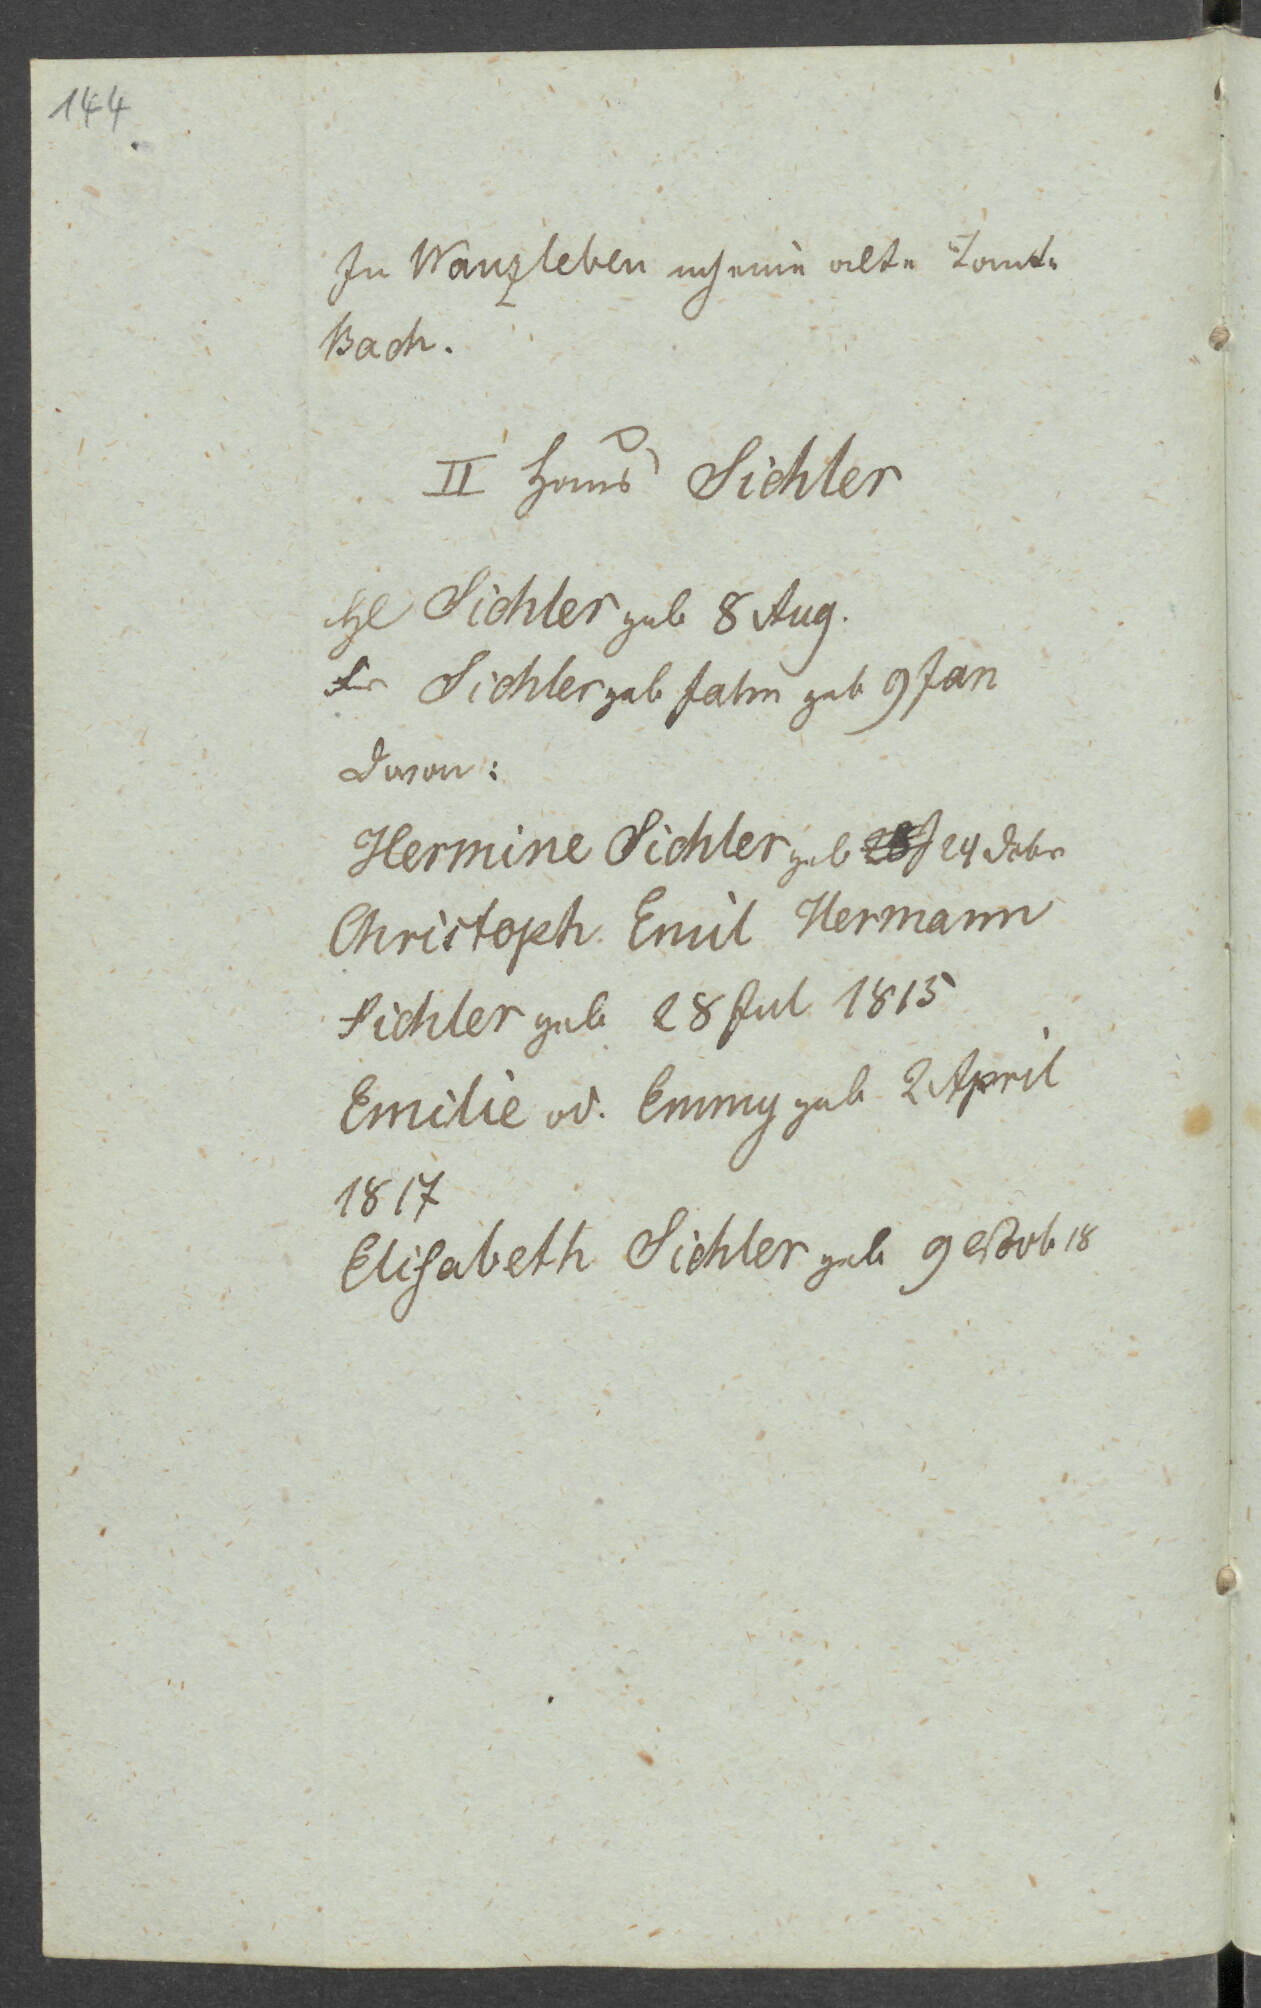 144
In Wanzleben noch eine alte Tante
Bach.
II Haus Sichler
He Sichler geb 8 Aug.
Fr Sichler geb Jahn geb 9 Jan
Davon:
Hermine Sichler geb 24 Debr
Christoph Emil Hermann
Sichler geb 28 Jul 1815
Emilie od. Emmy geb 2 April
1817
Elisabeth Sichler geb 9 18